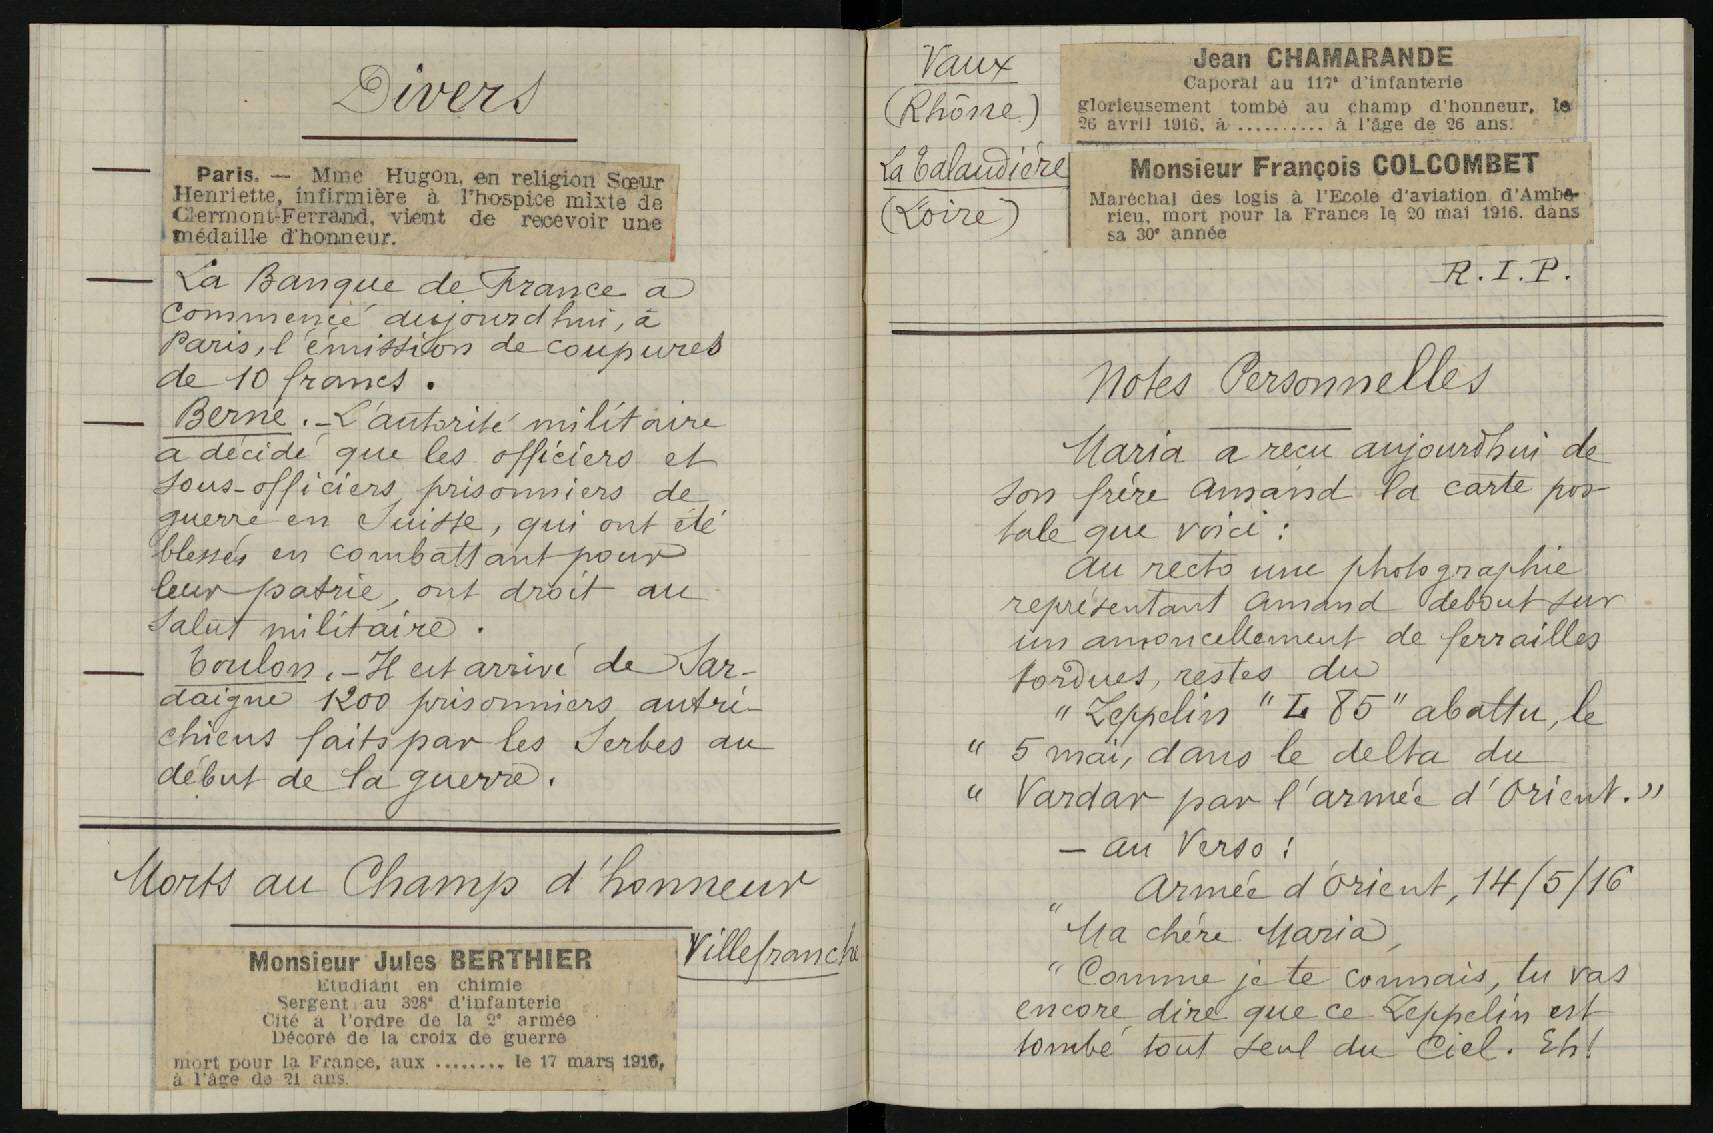 Divers
Paris. — Mme Hugon, en religion Sœur
Henriette, infirmière à l'hospice mixte de
Clermont-Ferrand, vient de recevoir une
médaille d'honneur.
La Banque de France a
commencé aujourd'hui, à
Paris, l'émission de coupures
de 10 francs.
Berne. - L'autorité militaire
a décidé que les officiers et
sous-officiers prisonniers de
guerre en Suisse, qui ont été
blessés en combattant pour
leur patrie, ont droit au
salut militaire.
Toulon. - Il est arrivé de Sar-
daigne 1200 prisonniers autri-
chiens faits par les Serbes au
début de la guerre.
Morts au Champ d'honneur
Villefranche
Monsieur Jules BERTHIER
Etudiant en chimie
Sergent au 328e d'infanterie
Cité à l'ordre de la 2e armée
Décoré de la croix de guerre
mort pour la France, aux ........ le 17 mars 1916,
à l'âge de 21 ans.
Vaux
(Rhône)
Jean CHAMARANDE
Caporal au 117e d'infanterie
glorieusement tombé au champ d'honneur, le
26 avril 1916, à .......... à l'âge de 26 ans.
La Talaudière
(Loire)
Monsieur François COLCOMBET
Maréchal des logis à l'Ecole d'aviation d'Ambé-
rieu, mort pour la France le 20 mai 1916, dans
sa 30e année
R.I.P.
Notes Personnelles
Maria a reçu aujourd'hui de
son frère Amand la carte pos-
tale que voici :
Au recto une photographie
représentant Amand debout sur
un amoncellement de ferrailles
tordues, restes du
" Zeppelin "L 85" abattu, le
" 5 mai, dans le delta du
" Vardar par l'armée d'Orient."
- Au Verso :
" Armée d'Orient, 14/5/16
" Ma chère Maria,
" Comme je te connais, tu vas
encore dire que ce Zeppelin est
tombé tout seul du Ciel. Eh!